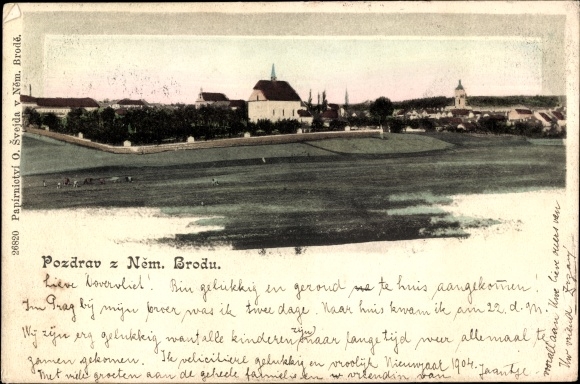 26820 Papírnictví O. Švejda v Něm. Brodě.
Pozdrav z Něm. Brodu.
Lieve Dovervliet! Bin gelukkig en gezond te huis aangekomen!
Im Prag bij mijn broer was ik twee dage. Naar huis kwam ik am 22. d. M.
Wij zijn erg gelukkig want alle kinderen zijn naar lange tijd weer allemaal te
zamen gekomen. Ik velicitiere gelukkig en vroolijk Nieuwjaar 1904.
Met viele groeten aan de geheele familie en vriendin van
vooral aan Uwe lieve
Uw vriend